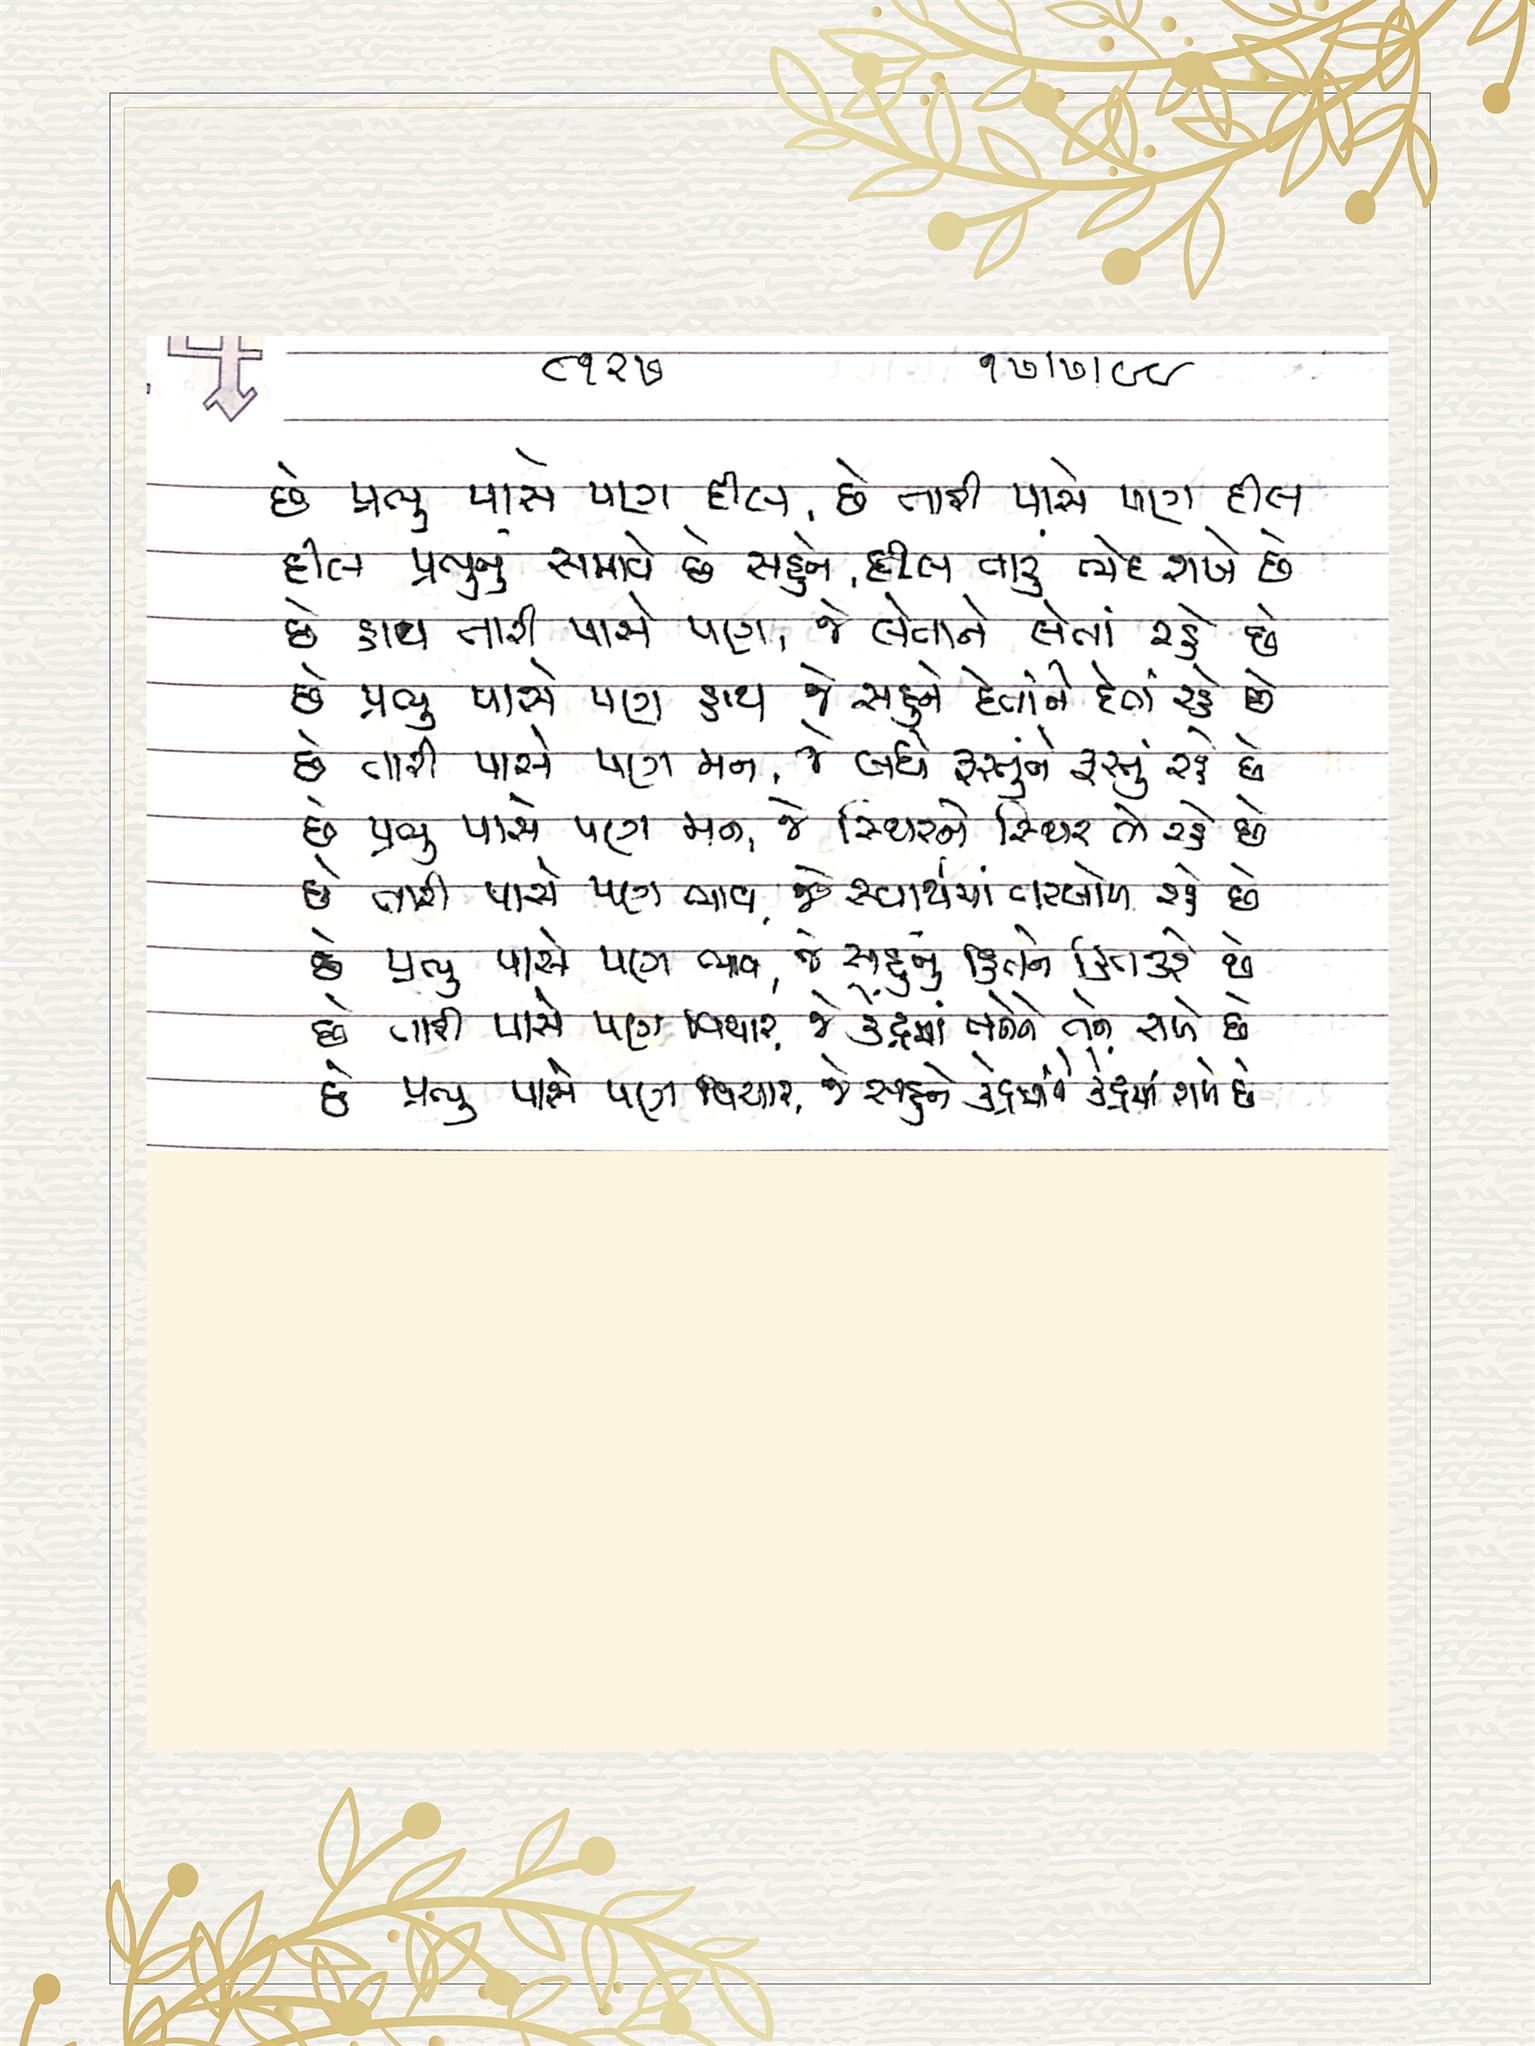 ૯૧૨૭ ૧૭/૭/૯૮
છે પ્રભુ પાસે પણ દીલ, છે તારી પાસે પણ દીલ
દીલ પ્રભુનું સમાવે છે સહુને, દીલ તારું ભેદ રાખે છે
છે હાથ તારી પાસે પણ, જે લેતાને લેતાં રહે છે
છે પ્રભુ પાસે પણ હાથ જે સહુને દેતાંને દેતાં રહે છે
છે તારી પાસે પણ મન, જે બધે ફરતુંને ફરતું રહે છે
છે પ્રભુ પાસે પણ મન, જે સ્થિરને સ્થિર તો રહે છે
છે તારી પાસે પણ ભાવ, જે સ્વાર્થમાં તરબોળ રહે છે
છે પ્રભુ પાસે પણ ભાવ, જે સહુનું હિતને હિત કરે છે
છે તારી પાસે પણ વિચાર, જે કેંદ્રમાં તને રાખે છે
છે પ્રભુ પાસે પણ વિચાર, જે સહુને કેંદ્રમાંને કેંદ્રમાં રાખે છે